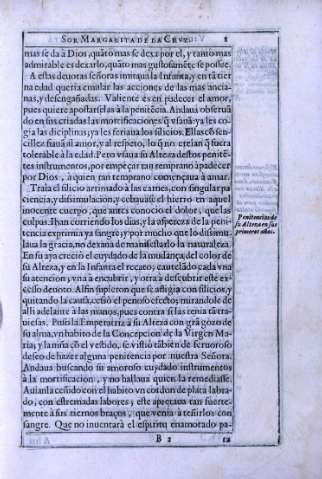 SOR MARGARITA DE LA CRUZ. 8
mas se dà à Dios, quãto mas se dexa por el, y tanto mas
admirable es dexarlo, quãto mas gustosamẽte se possee.
A estas deuotas señoras imitaua la Infanta, y en tã tier
na edad queria emular las acciones de las mas ancia-
nas, y desengañadas. Valiente es en padecer el amor,
pues quiere apostarselas à la penitẽcia. Andaua obseruã
do en sus criadas las mortificaciones q̃ vsauã: ya les co
gia las diciplinas; ya les feriaua los silicios. Ellas cõ sen-
cillez fiauã al amor, y al respeto, lo que no creiã q̃ fuera
tolerable à la edad. Pero vsaua su Alteza destos penitẽ
tes instrumentos, por empeçar tan temprano à padecer
por Dios, à quien tan temprano començaua à amar.
Traia el silicio arrimado à las carnes, con singular pa
ciencia, y dissimulacion, y cebauase el hierro en aquel
inocente cuerpo, que antes conocio el dolor, que las
culpas. Iban corriendo los dias, y la aspereza de la peni
tencia exprimia ya sangre; y por mucho que lo dissimu
laua la gracia, no dexaua de manifestarlo la naturaleza.
En su aya creciò el cuydado de la mudança del color de
su Alteza, y en la Infanta el recato; cautelãdo cada vna
su atencion, vna à encubrir, y otra à descubrir este ex-
cesso deuoto. Al fin supieron que se afligia con silicios, y
quitando la causa, cessò el penoso efecto; mirandole de
alli adelante à las manos, pues contra si las tenia tra-
uiesas. Pusole la Emperatriz à su Alteza con grã gozo de
su alma, vn habito de la Concepcion de la Virgen Ma-
ria; y la niña cõ el vestido, se vistiò tãbien de feruoroso
deseo de hazer alguna penitencia por nuestra Señora.
Andaua buscando su amoroso cuydado instrumentos
à la mortificacion, y no hallaua quien la remediasse.
Auianla ceñido con el habito vn cordon de plata labra-
do, con estremadas labores; este apretaua tan fuerte-
mente à sus tiernos braços, que venia à teñirlos con
sangre. Que no inuentarà el espiritu enamorado pa-
B 2 ra
Penitencias de
su Alteza en sus
primeros años.